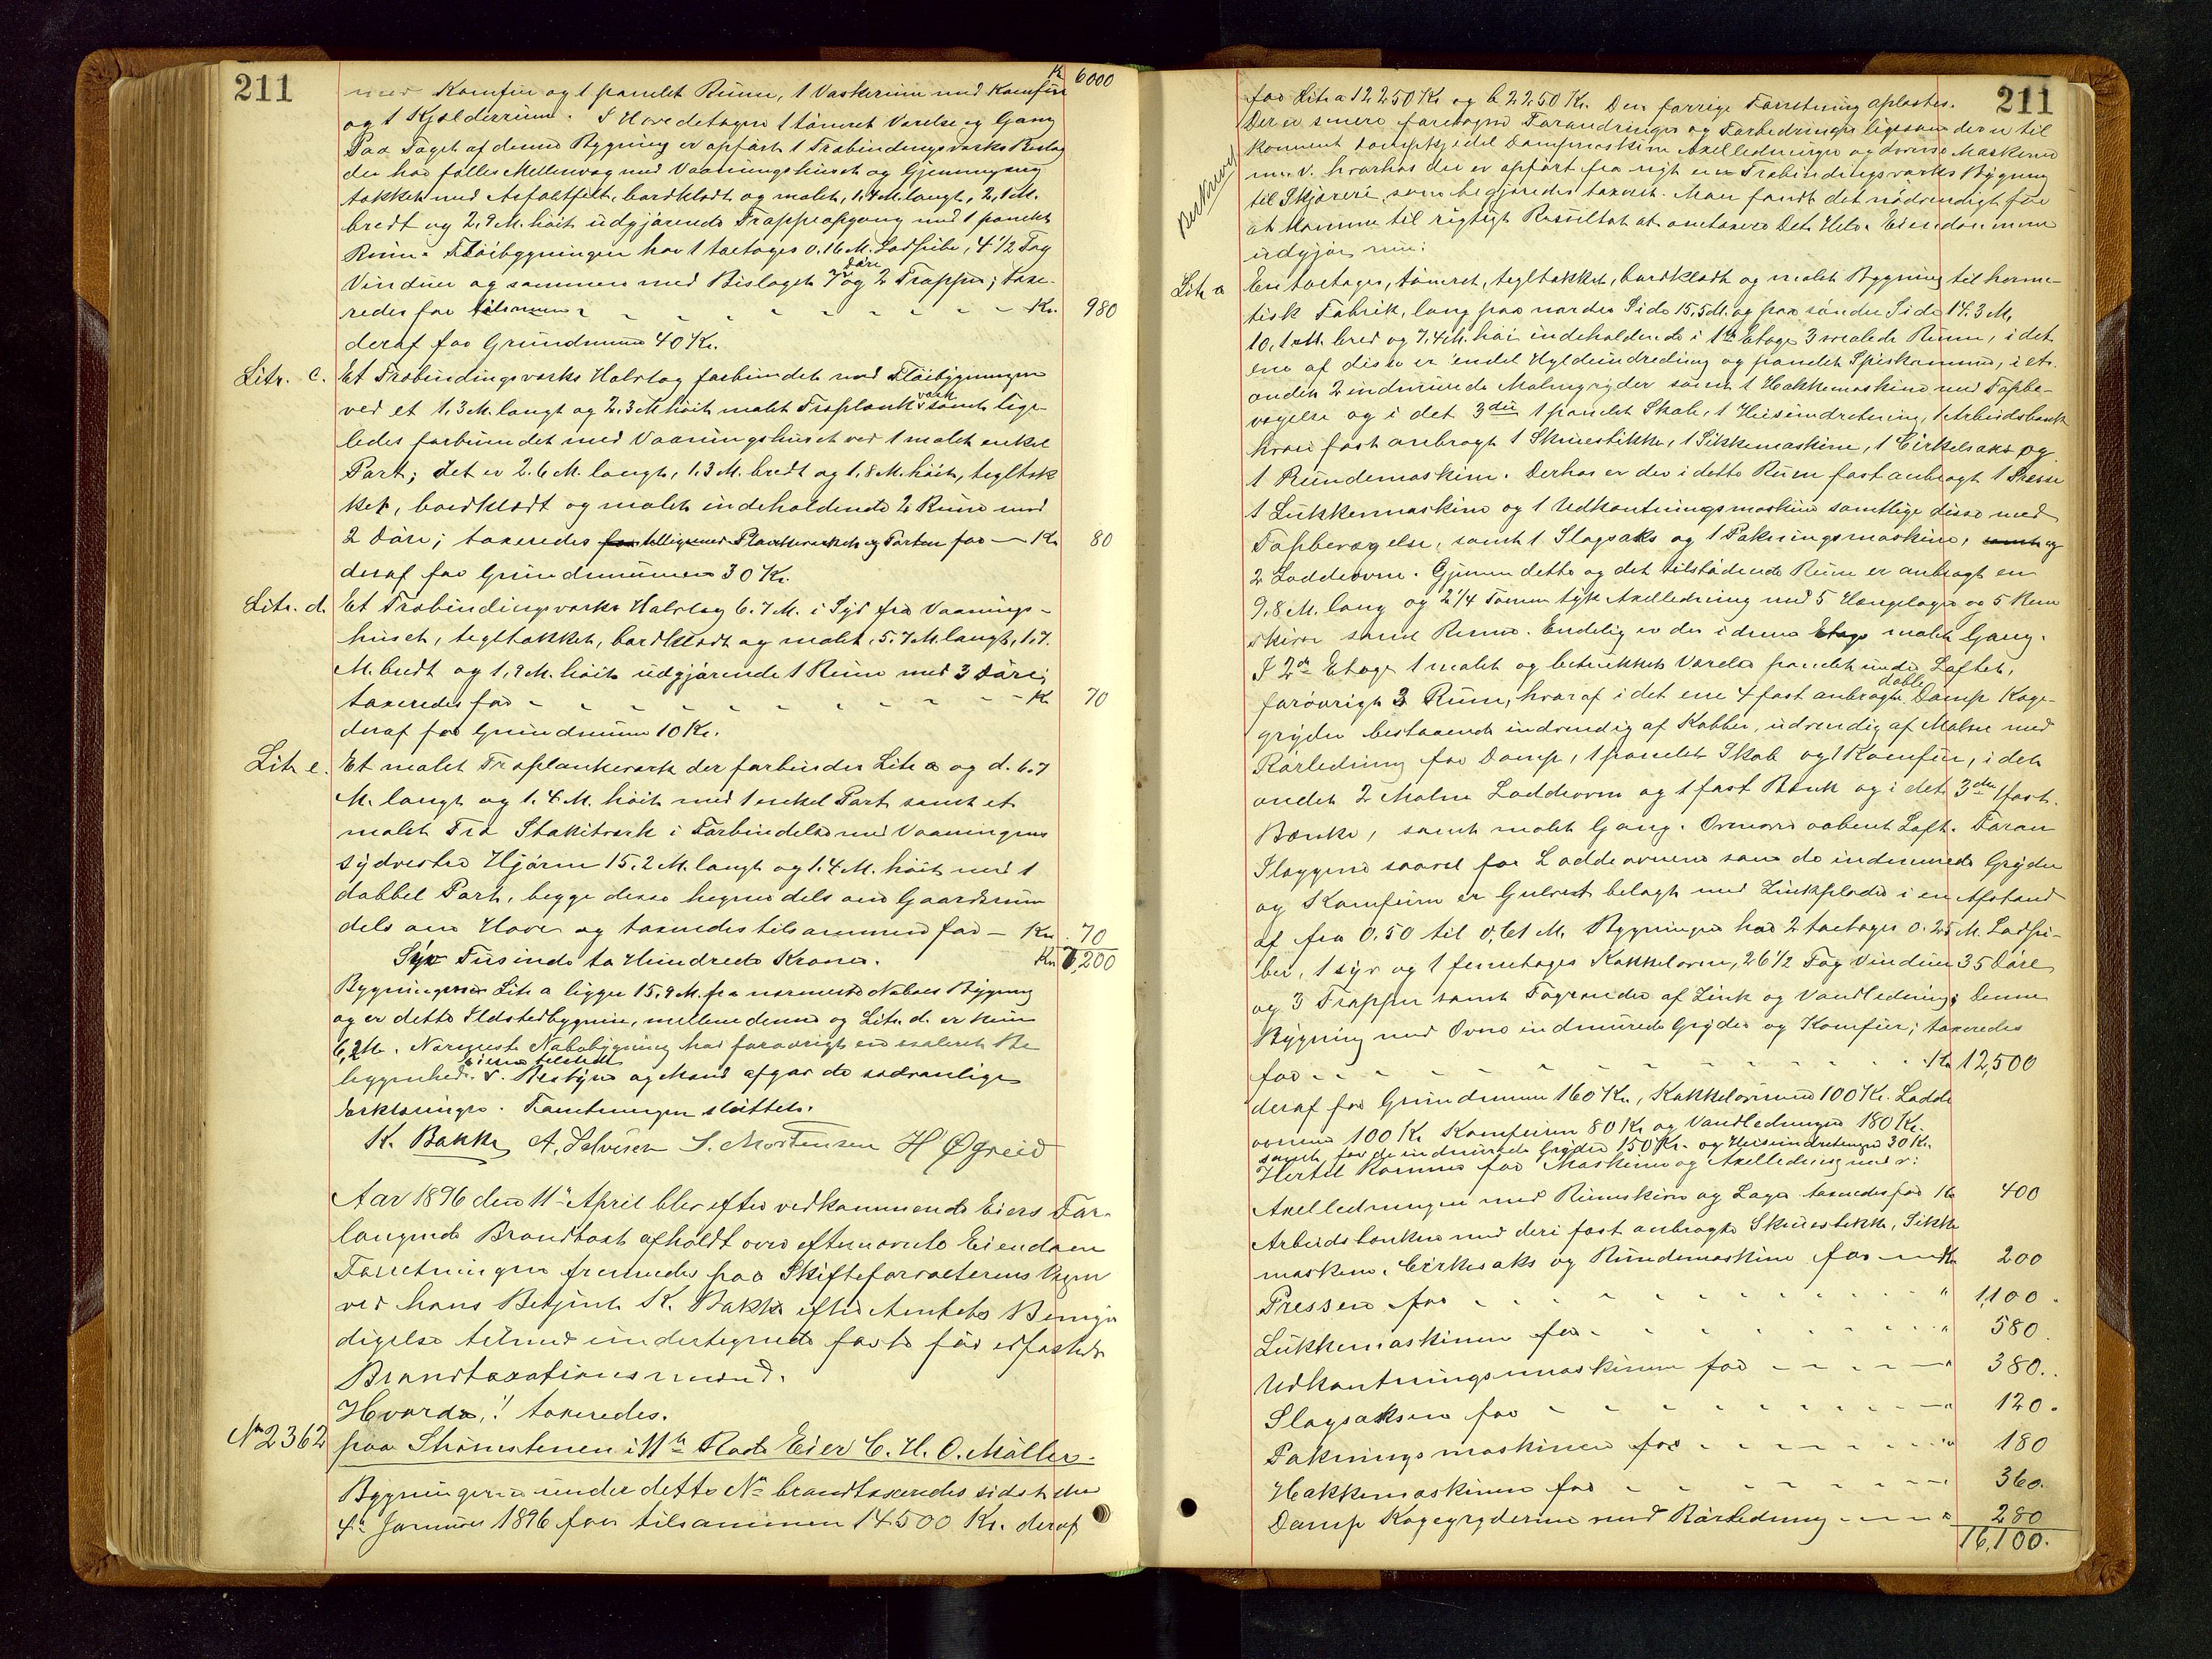 211
Kr 6000
med Komfur og 1 panelet Rum, 1 Vaskerum med Komfur
og 1 Kjælderrum. I Hovedetagen 1 tømret Værelse og Gang
Paa Taget af denne Bygning er opført 1 Træbindingsværks Bislag
der har fælles Mellemvæg med Vaaningshuset og Gjennemgang
tækket med Asfaltfilt, bordklædt og malet, 1,7 M. langt, 2,1 M.
bredt og 2,9 M. høit udgjørende Trappeopgang med 1 panelet
Rum. Fløibygningen har 1 toetages 0.16 M. Ladpibe, 4 1/2 Fag
Vinduer og sammen med Bislaget 7 Døre og 2 Trapper; taxe-
redes for tilsammen - - - - Kr. 980
deraf for Grundmuren 40 Kr.
Litr. c. Et Træbindingsværks Halvtag forbundet med Fløibygningen
ved et 1,3 M. langt og 2,3 M. høit malet Træplankeværk samt lige-
ledes forbundet med Vaaningshuset ved 1 malet enkel
Port; det er 2.6 M. langt, 1.3 M. bredt og 1,8 M. høit, tegltæk
ket, bordklædt og malet indeholdende 2 Rum med
2 Døre; taxeredes for tilligemed Plankeværket og Porten for - Kr 80
deraf for Grundmuren 30 Kr.
Litr. d. Et Træbindingsværks Halvtag 6.7 M. i Syd fra Vaanings-
huset, tegltækket, bordklædt og malet, 5,7 M. langt, 1.7.
M. bredt og 1,9 M. høit udgjørende 1 Rum med 3 Døre;
taxeredes for - - - - Kr 70
deraf for Grundmuren 10 Kr.
Litr e. Et malet Træplankeværk der forbinder Litr a og d. 6.7
M. langt og 1.4 M. høit med 1 enkel Port samt et
malet Træ Stakitværk i Forbindelse med Vaaningens
sydvestre Hjørne 15,2 M. langt og 1.4 M. høit med 1
dobbel Port, begge disse hegne dels om Gaardsrum
dels om Have og taxeredes tilsammen for - Kr. 70
Syv Tusinde to Hundrede Kroner. Kr 7,200
Bygningerne Litr a ligger 15,9 M. fra nærmeste Naboes Bygning
og er dette Ildstedbygning, mellem denne og Litr. d. er kun
6,2 M. Nærmeste Nabobygning har forøvrigt en isoleret Be
liggenhed. Bestyrer og Mænd afgav de sædvanlige
Erklæringer. Forretningen sluttet.
K. Bakke A. Halvorsen S. Mortensen H Øgreid
Aar 1896 den 11te April blev efter vedkommende Eiers For-
langende Brandtaxt afholdt over efternævnte Eiendom
Forretningen fremmedes paa Skifteforvalterens Vegne
ved hans Betjent K. Bakke efter Amtets Bemyn
digelse tilmed undertegnede faste før edfæstede
Brandtaxationsmænd.
Hvorda,! taxeredes.
No 2362 paa Strømstenen i 11te Rode Eier C. H. O. Møller.
Bygningerne under dette No brandtaxeredes sidst den
4de Januar 1896 for tilsammen 14500 Kr. deraf
211
for Litr a 12250 Kr og b 2250 Kr. Den forrige Forretning oplæstes.
Der er senere foretagne Forandringer og Forbedringer ligesom der er til
kommet Dampkjedel Dampmaskine Axelledninger og diverse Maskiner
m. v. hvorhos der er opført fra nyt en Træbindingsværks Bygning
til Skjæreri, som begjæredes taxeret. Man fandt det nødvendigt for
at komme til rigtigt Resultat at omtaxere Det Hele. Eiendommen
udgjør nu:
Litr a En toetages, tømret, tegltækket, bordklædt og malet Bygning til herme-
tisk Fabrik, lang paa nordre Side 15,5 M. og paa søndre Side 14.3 M,
10,1 M. bred og 7,4 M. høi indeholdende i 1ste Etage 3 malede Rum, i det
ene af disse er endel Hyldeindredning og panelet Spiskammer, i et
andet 2 indmurede Malmgryder samt 1 Hakkemaskine med Fodbe-
vægelse og i det 3die 1 panelet Skab, 1 Heisindretning, 1 Arbeidsbænk
hvori fast anbragt 1 Skruestikke, 1 Sikkemaskine, 1 Cirkelsaks og
1 Rundemaskine. Derhos er der i dette Rum fast anbragt 1 Presse
1 Lukkemaskine og 1 Udkantningsmaskine samtlige disse med
Fodbevægelse, samt 1 Slagsaks og 1 Pakningsmaskine, samt og
2 Loddeovne. Gjennem dette og det tilstødende Rum er anbragt en
9,8 M. lang og 2 1/4 Tomme tyk Axelledning med 5 Hængelagre og 5 Rem
skiver samt Remme. Endelig er der i denne Etage malet Gang.
I 2den Etage 1 malet og betrukket Værelse panelet under Loftet,
forøvrigt 3 Rum, hvoraf i det ene 4 fast anbragte doble Damp Koge-
gryder bestaaende indvendig af Kobber, udvendig af Malm med
Rørledning for Damp, 1 panelet Skab og 1 Komfur, i det
andet 2 Malm Loddeovne og 1 fast Bænk og i det 3die 1 fast
Bænke, samt malet Gang. Ovenover aabent Loft. Foran
Ilæggene saavel for Loddeovnene som de indmurede Gryder
og Komfuren er Gulvet belagt med Zinkplader i en Afstand
af fra 0.50 til 0,61 M. Bygningen har 2 toetages 0.25 M. Ladpi-
ber, 1 syv og 1 femetages Kakkelovn, 26 1/2 Fag Vinduer 35 Døre
og 3 Trapper samt Tagrender af Zink og Vandledning; Denne
Bygning med Ovne indmurede Gryder og Komfur; taxeredes
for - - - - Kr 12,500
deraf for Grundmuren 160 Kr., Kakkelovnene 100 Kr. Lodde
ovnene 100 Kr Komfuren 80 Kr og Vandledningen 180 Kr.
samt for de indmurede Gryder 150 Kr. og Heisindretningen 30 Kr.
Hertil kommer for Maskiner og Axelledning med v:
Axelledningen med Remskiver og Lager taxeredes for Kr 400
Arbeidsbænken med deri fast anbragte Skruestikke, Sikke
maskine, Cirkelsaks og Rundemaskine for - Kr 200
Pressen for - - - - " 1,100.
Lukkemaskinen for - - - - " 580.
Udkantningsmaskinen for - - - - " 380.
Slagsaksen for - - - - " 120.
Pakningsmaskinen for - - - - " 180
Hakkemaskinen for - - - - " 360.
Damp Kogegryderne med Rørledning - - - " 280
16,100.